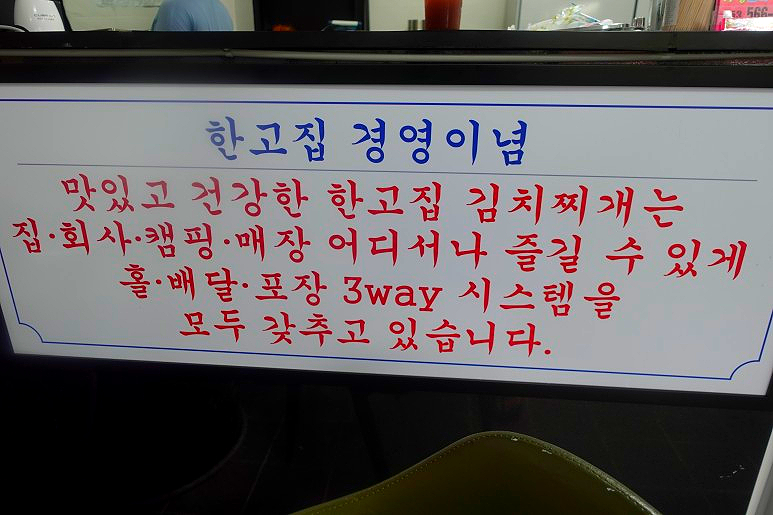 한고집 경영이념
맛있고 건강한 한고집 김치찌개는
집·회사·캠핑·매장 어디서나 즐길 수 있게
홀·배달·포장 3way 시스템을
모두 갖추고 있습니다.